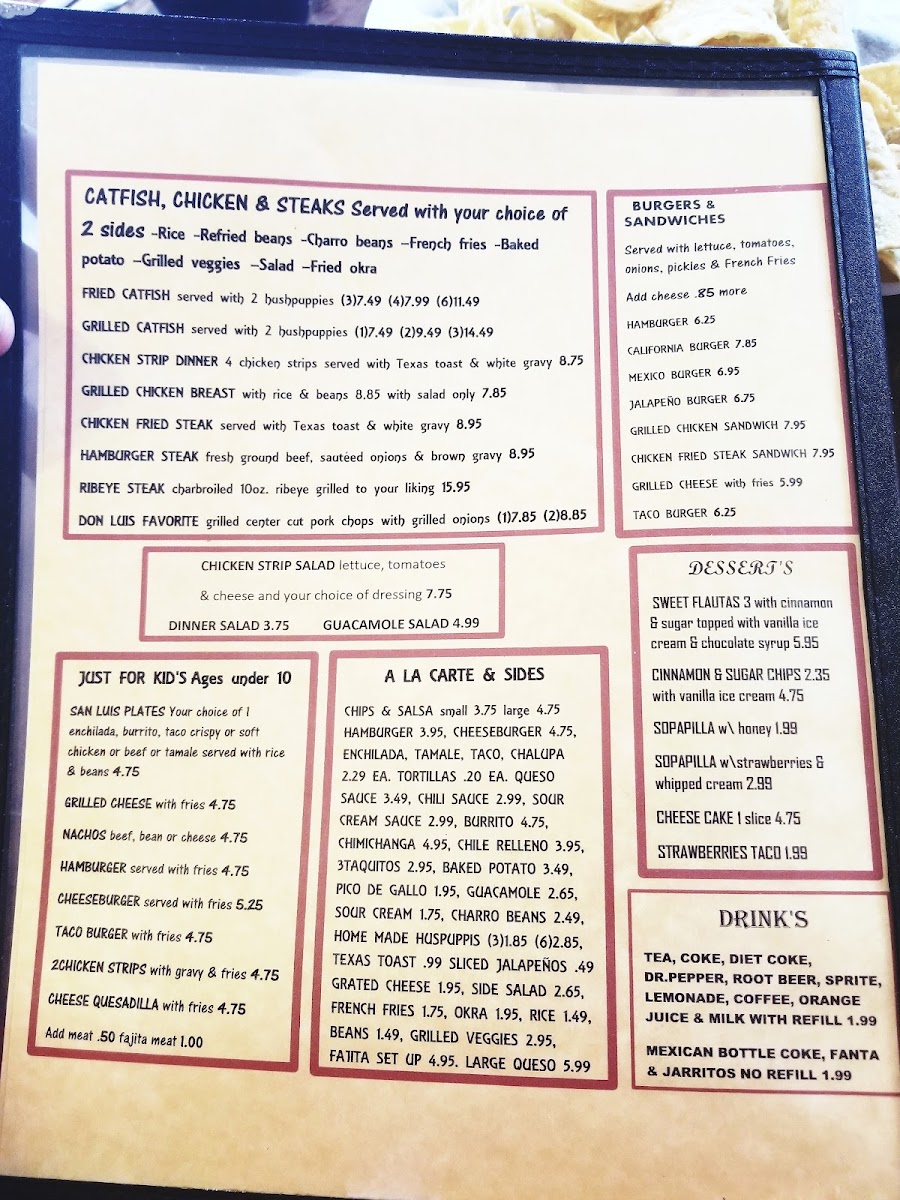 CATFISH, CHICKEN & STEAKS Served with your choice of
2 sides -Rice -Refried beans -Charro beans -French fries -Baked
potato -Grilled veggies -Salad -Fried okra
FRIED CATFISH served with 2 hushpuppies (3)7.49 (4)7.99 (6)11.49
GRILLED CATFISH served with 2 hushpuppies (1)7.49 (2)9.49 (3)14.49
CHICKEN STRIP DINNER 4 chicken strips served with Texas toast & white gravy 8.75
GRILLED CHICKEN BREAST with rice & beans 8.85 with salad only 7.85
CHICKEN FRIED STEAK served with Texas toast & white gravy 8.95
HAMBURGER STEAK fresh ground beef, sautéed onions & brown gravy 8.95
RIBEYE STEAK charbroiled 10oz. ribeye grilled to your liking 15.95
DON LUIS FAVORITE grilled center cut pork chops with grilled onions (1)7.85 (2)8.85
BURGERS &
SANDWICHES
Served with lettuce, tomatoes,
onions, pickles & French Fries
Add cheese .85 more
HAMBURGER 6.25
CALIFORNIA BURGER 7.85
MEXICO BURGER 6.95
JALAPEÑO BURGER 6.75
GRILLED CHICKEN SANDWICH 7.95
CHICKEN FRIED STEAK SANDWICH 7.95
GRILLED CHEESE with fries 5.99
TACO BURGER 6.25
CHICKEN STRIP SALAD lettuce, tomatoes
& cheese and your choice of dressing 7.75
DINNER SALAD 3.75 GUACAMOLE SALAD 4.99
JUST FOR KID'S Ages under 10
SAN LUIS PLATES Your choice of 1
enchilada, burrito, taco crispy or soft
chicken or beef or tamale served with rice
& beans 4.75
GRILLED CHEESE with fries 4.75
NACHOS beef, bean or cheese 4.75
HAMBURGER served with fries 4.75
CHEESEBURGER served with fries 5.25
TACO BURGER with fries 4.75
2CHICKEN STRIPS with gravy & fries 4.75
CHEESE QUESADILLA with fries 4.75
Add meat .50 fajita meat 1.00
A LA CARTE & SIDES
CHIPS & SALSA small 3.75 large 4.75
HAMBURGER 3.95, CHEESEBURGER 4.75,
ENCHILADA, TAMALE, TACO, CHALUPA
2.29 EA. TORTILLAS .20 EA. QUESO
SAUCE 3.49, CHILI SAUCE 2.99, SOUR
CREAM SAUCE 2.99, BURRITO 4.75,
CHIMICHANGA 4.95, CHILE RELLENO 3.95,
3TAQUITOS 2.95, BAKED POTATO 3.49,
PICO DE GALLO 1.95, GUACAMOLE 2.65,
SOUR CREAM 1.75, CHARRO BEANS 2.49,
HOME MADE HUSPUPPIS (3)1.85 (6)2.85,
TEXAS TOAST .99 SLICED JALAPEÑOS .49
GRATED CHEESE 1.95, SIDE SALAD 2.65,
FRENCH FRIES 1.75, OKRA 1.95, RICE 1.49,
BEANS 1.49, GRILLED VEGGIES 2.95,
FAJITA SET UP 4.95. LARGE QUESO 5.99
DESSERT'S
SWEET FLAUTAS 3 with cinnamon
& sugar topped with vanilla ice
cream & chocolate syrup 5.95
CINNAMON & SUGAR CHIPS 2.35
with vanilla ice cream 4.75
SOPAPILLA w\ honey 1.99
SOPAPILLA w\strawberries &
whipped cream 2.99
CHEESE CAKE 1 slice 4.75
STRAWBERRIES TACO 1.99
DRINK'S
TEA, COKE, DIET COKE,
DR.PEPPER, ROOT BEER, SPRITE,
LEMONADE, COFFEE, ORANGE
JUICE & MILK WITH REFILL 1.99
MEXICAN BOTTLE COKE, FANTA
& JARRITOS NO REFILL 1.99